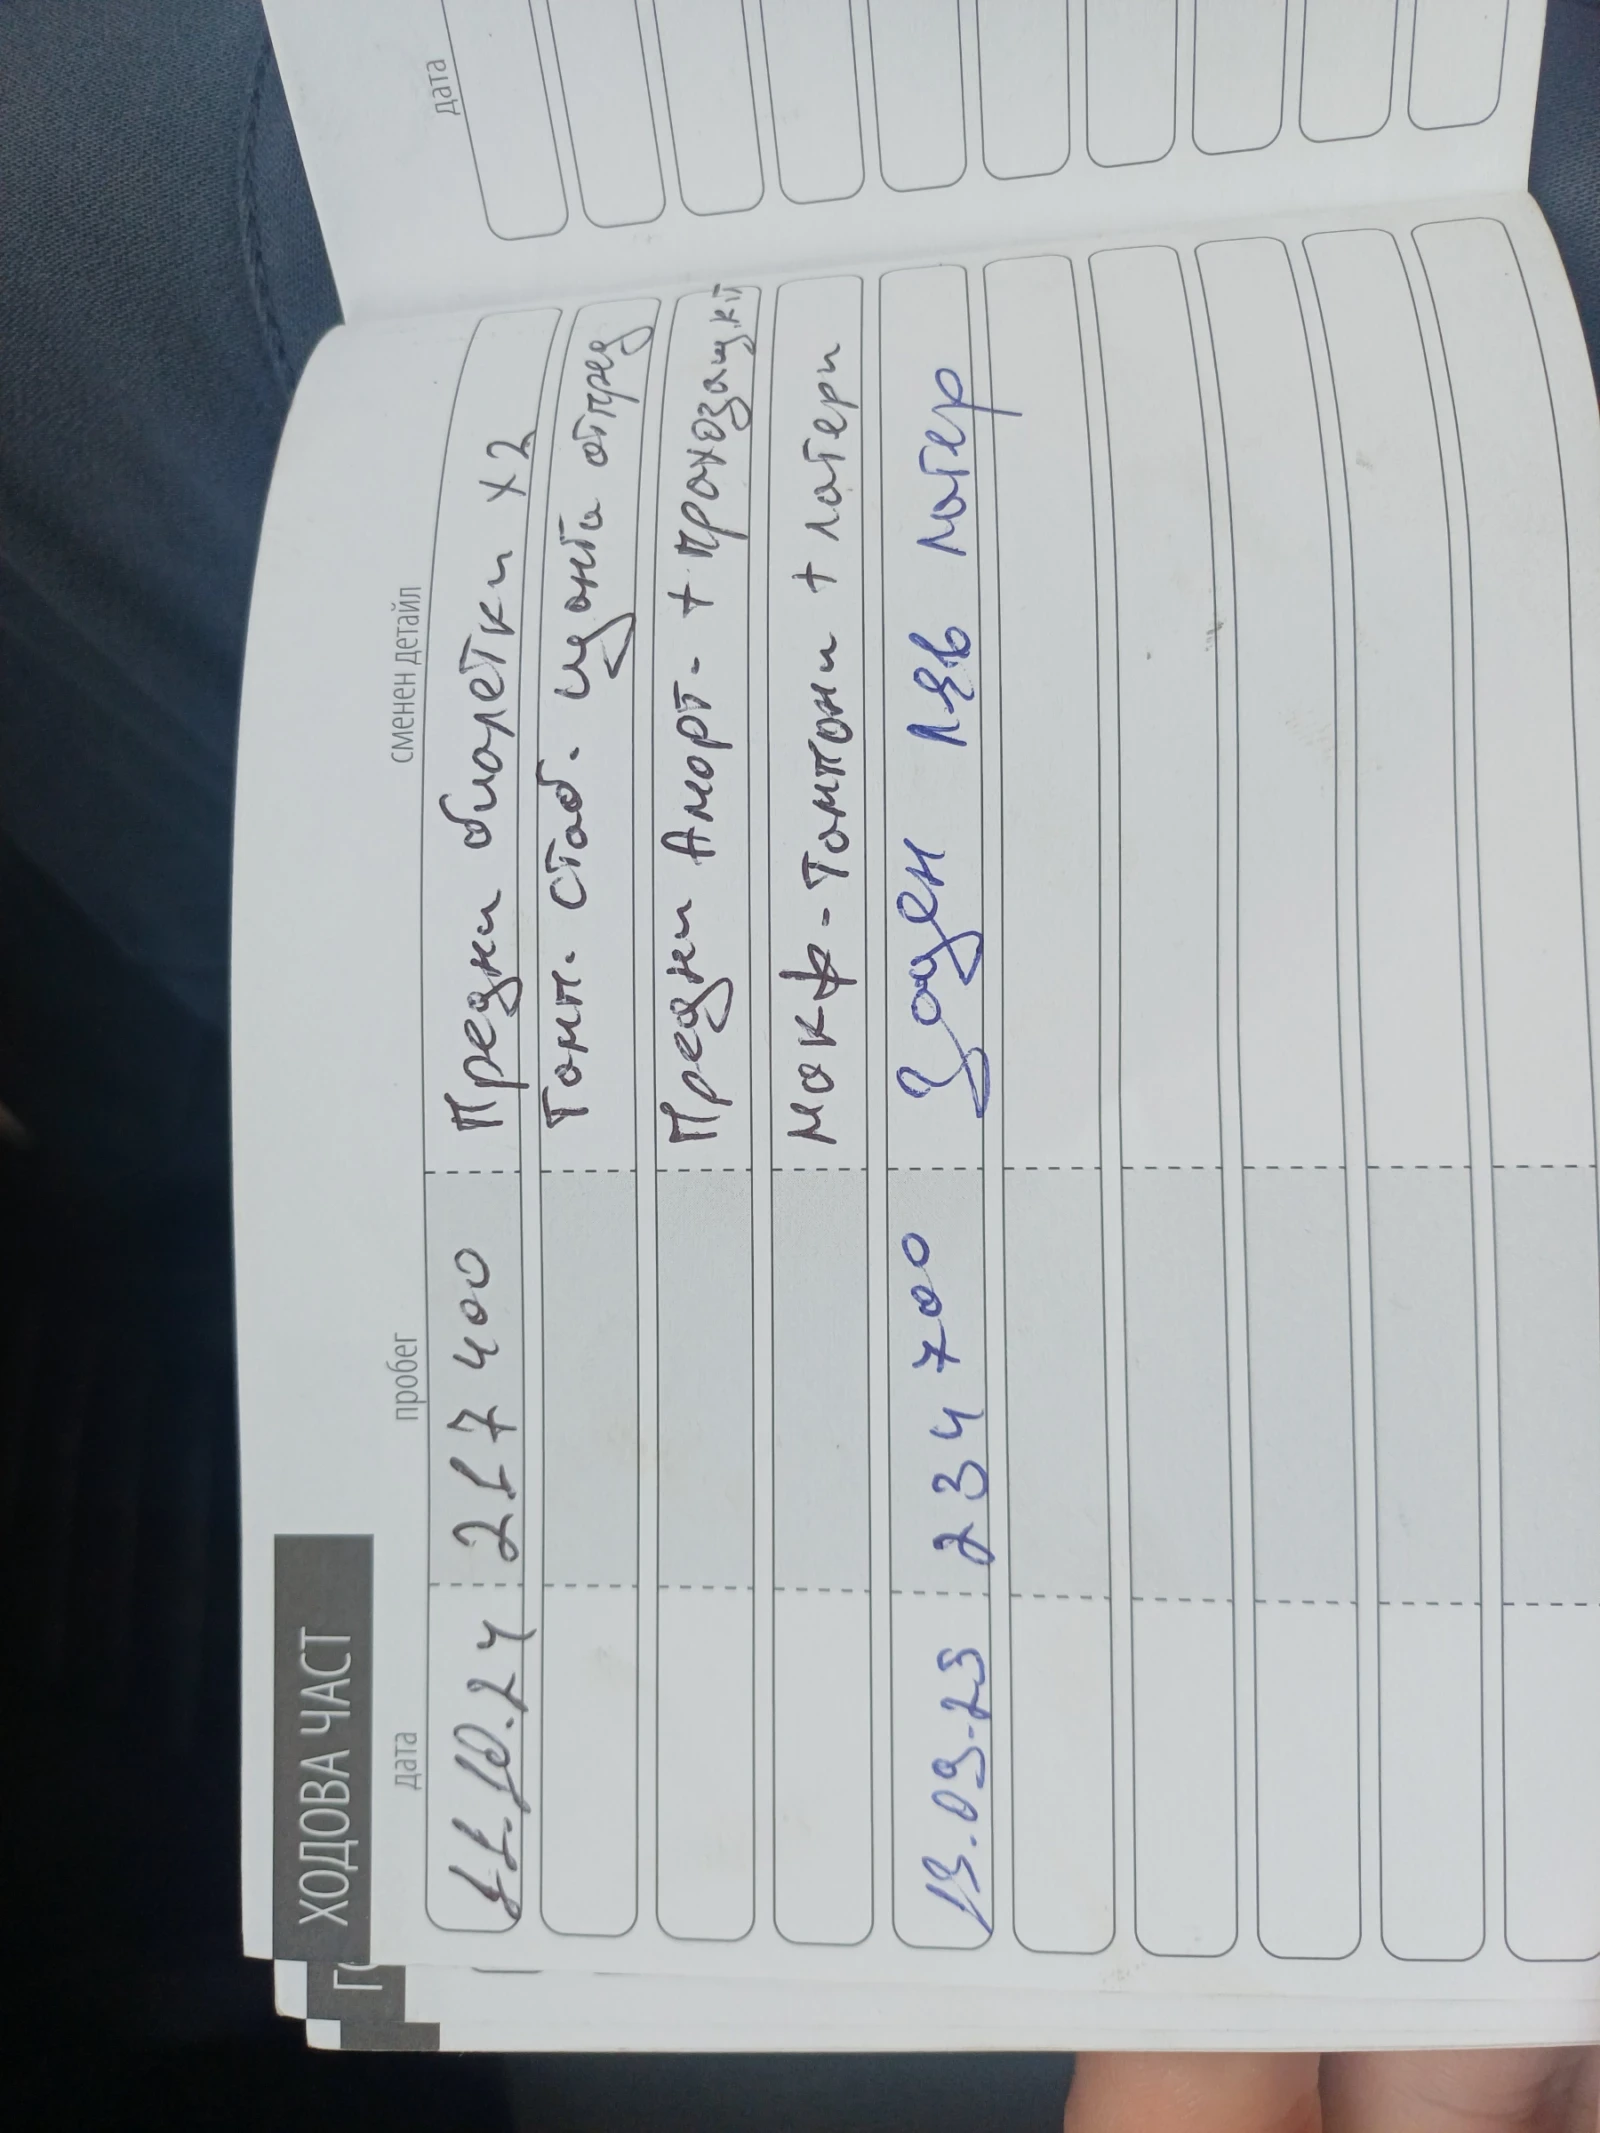 ХОДОВА ЧАСТ
дата пробег сменен детайл дата
11.10.24 217 400 Предни биалетки x2
Тамп. стаб. щанга отпред
Предни Аморт. + прахозащит
макф-тампони + лагери
19.09.25 234 700 Заден ляв лагер